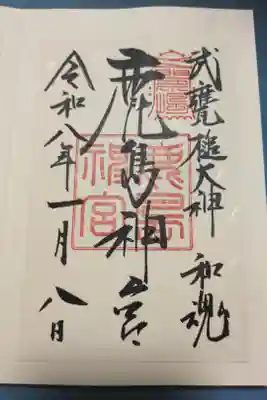 武甕槌大神 和魂
鹿島神宮
鹿島神宮
令和八年一月八日